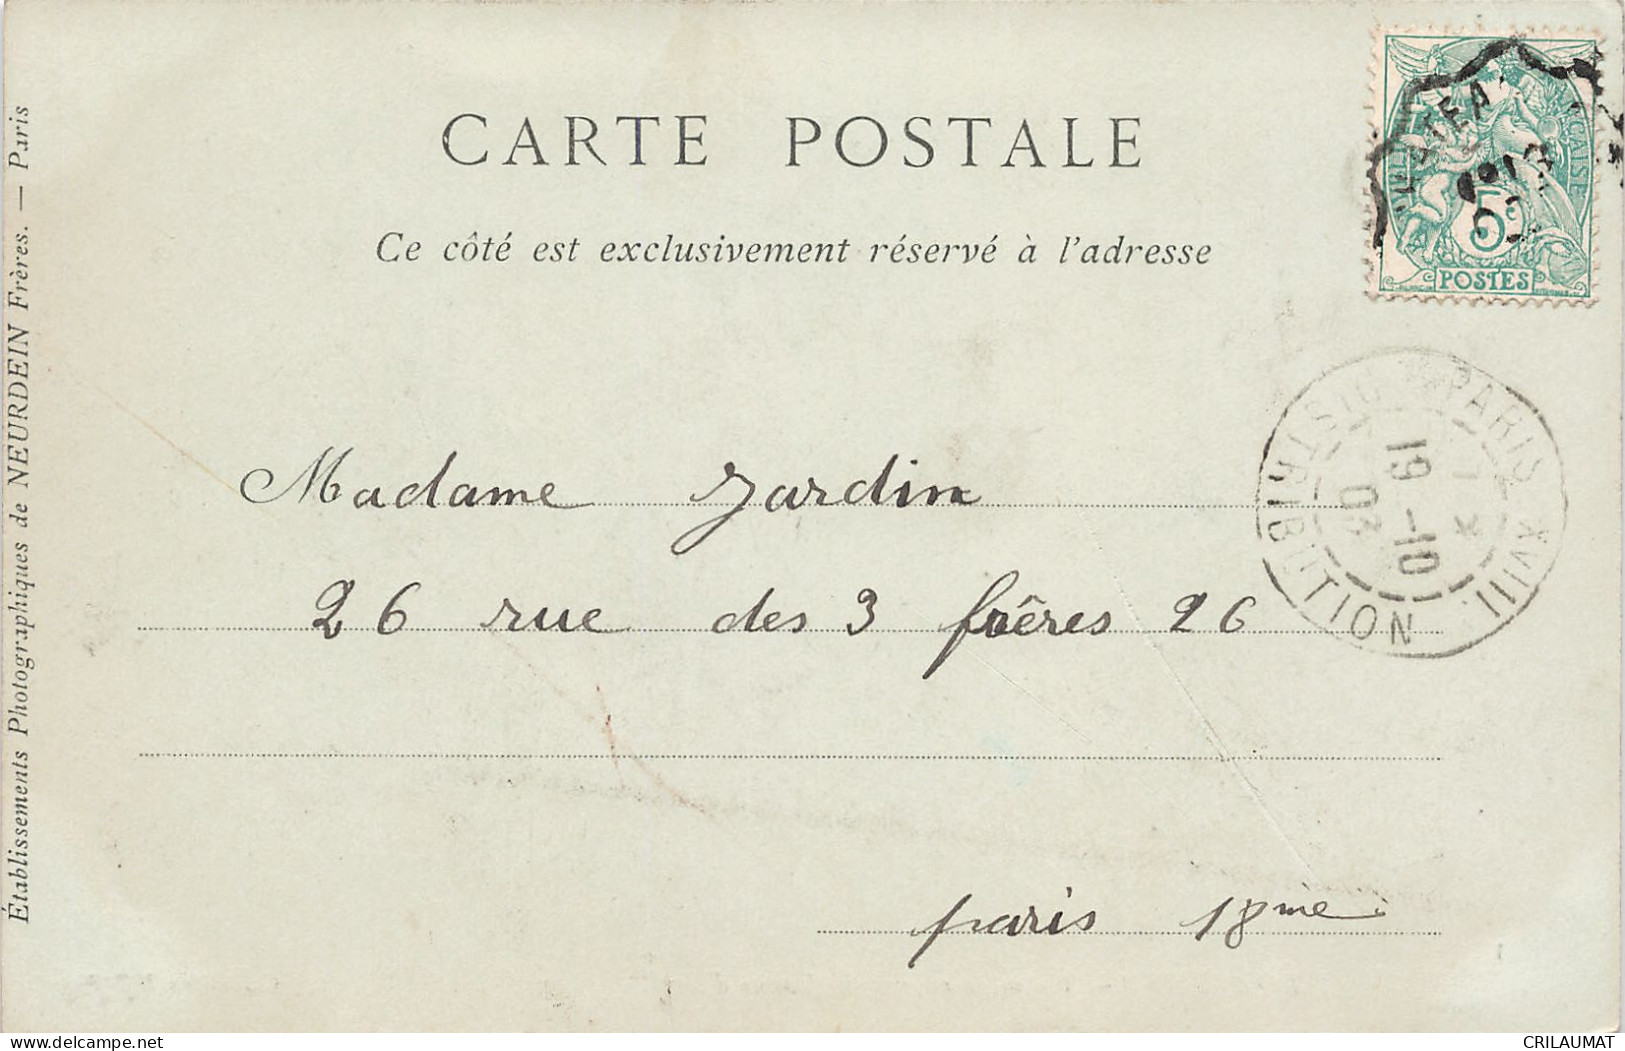 CARTE POSTALE
Ce côté est exclusivement réservé à l'adresse
Établissements Photographiques de NEURDEIN Frères. — Paris
5c
POSTES
PARIS XVIII.
DISTRIBUTION
19-10
03
Madame Jardin
26 rue des 3 frères 26
paris 18me
delcampe.net
CRILAUMAT